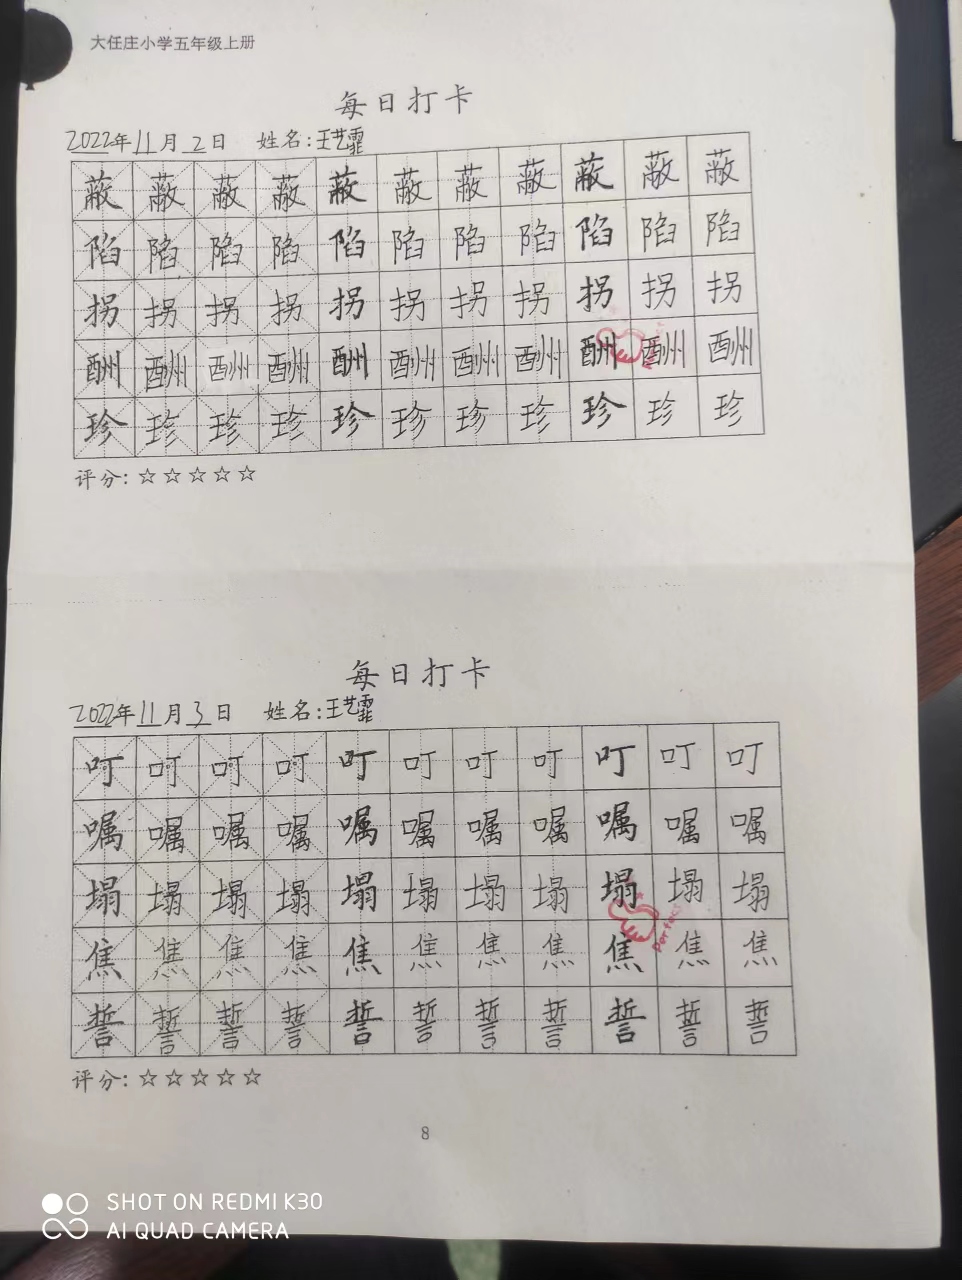 大任庄小学五年级上册
每日打卡
2022年11月2日 姓名:王艺霏
蔽蔽蔽蔽蔽蔽蔽蔽蔽蔽蔽
陷陷陷陷陷陷陷陷陷陷陷
拐拐拐拐拐拐拐拐拐拐拐
酬酬酬酬酬酬酬酬酬酬酬
珍珍珍珍珍珍珍珍珍珍珍
评分:☆☆☆☆☆
每日打卡
2022年11月3日 姓名:王艺霏
叮叮叮叮叮叮叮叮叮叮叮
嘱嘱嘱嘱嘱嘱嘱嘱嘱嘱嘱
塌塌塌塌塌塌塌塌塌塌塌
Perfect
焦焦焦焦焦焦焦焦焦焦焦
誓誓誓誓誓誓誓誓誓誓誓
评分:☆☆☆☆☆
8
SHOT ON REDMI K30
AI QUAD CAMERA